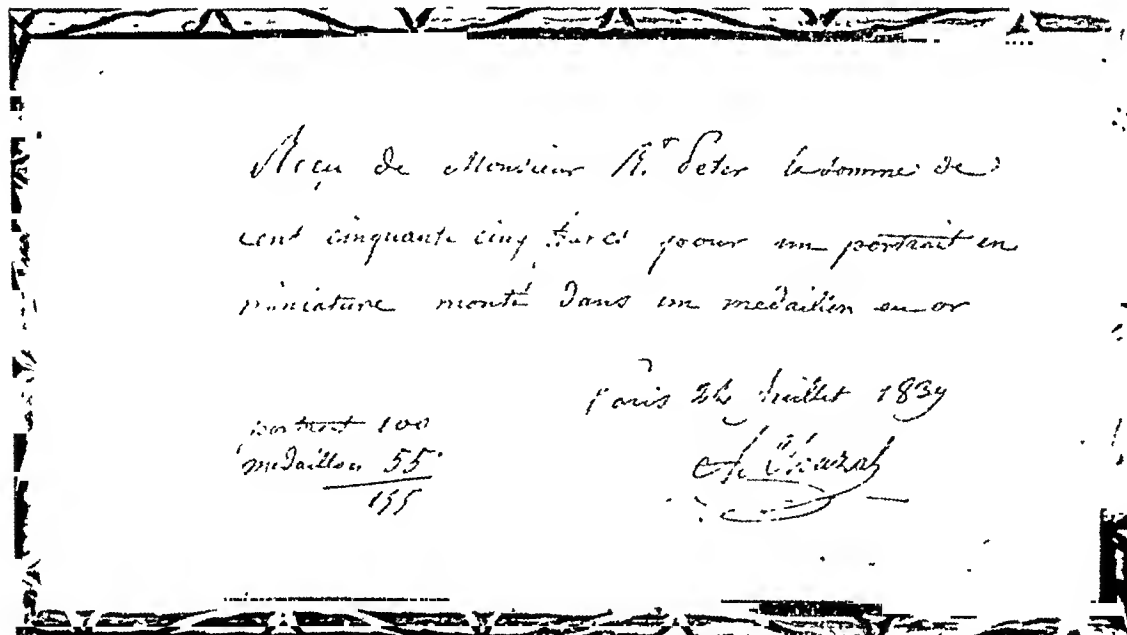 Reçu de Monsieur R.t Peter la somme de
cent cinquante cinq francs pour un portrait en
miniature monté dans un medaillon en or
Paris 24 Juillet 1839
portrait 100
medaillon 55
155
A. Chazal